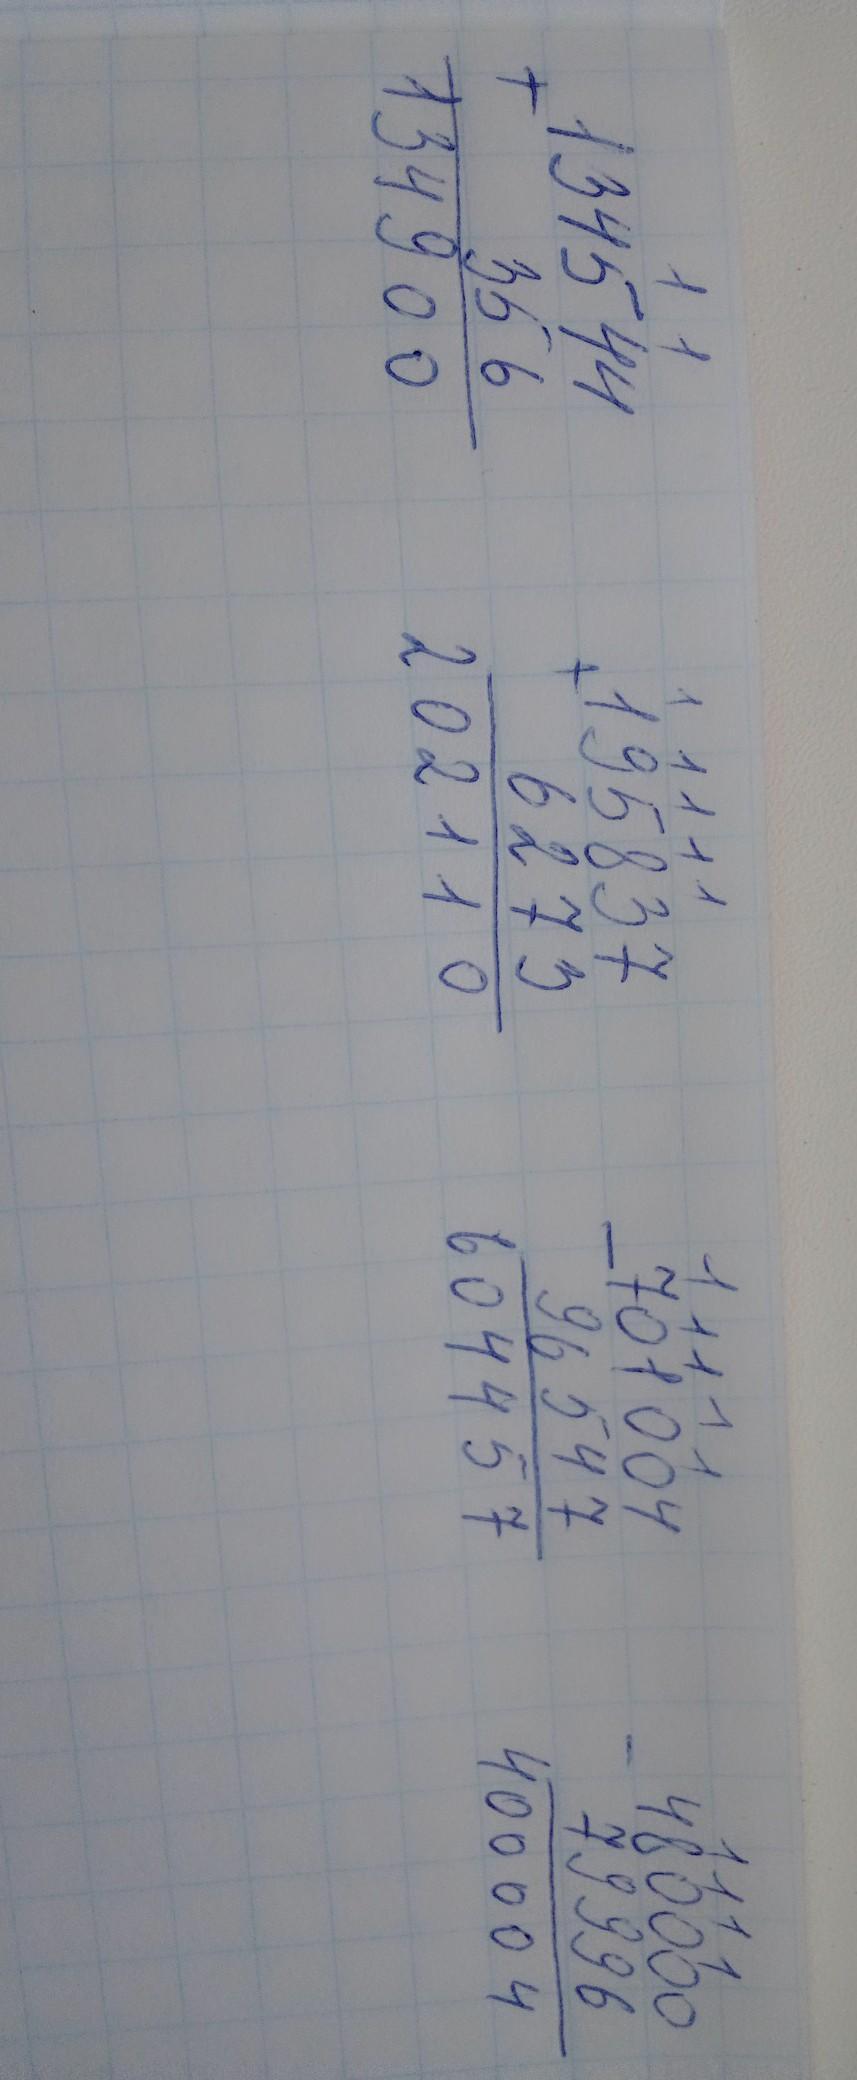 1 1
+134544
356
134900
1 1 1 1 1
+195837
6273
202110
1 1 1 1 1
-701004
96547
604457
1 1 1 1
-480000
79996
400004